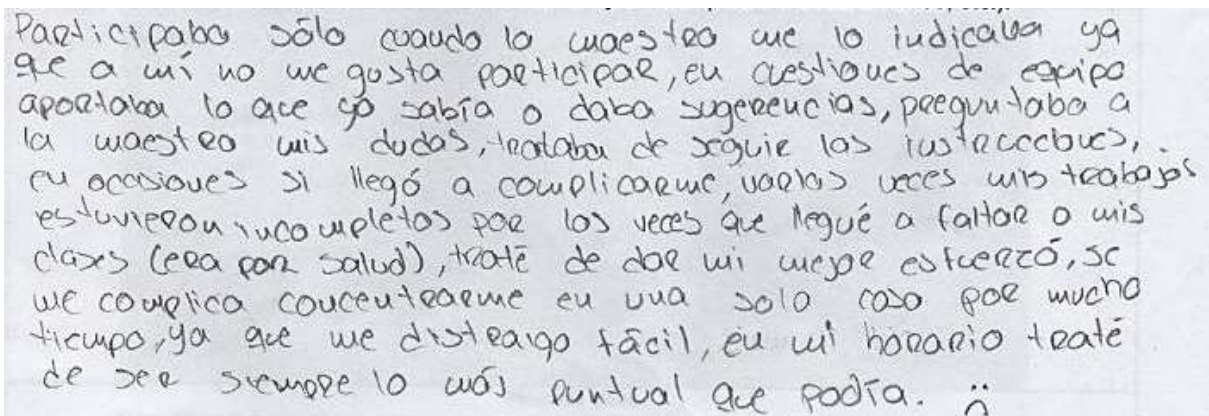 Participaba sólo cuando la maestra me lo indicaba ya
que a mí no me gusta participar, en cuestiones de equipo
aportaba lo que yo sabía o daba sugerencias, preguntaba a
la maestra mis dudas, trataba de seguir las instrucciones,
en occasiones si llegó a complicarme, varias veces mis trabajos
estuvieron incompletos por las veces que llegué a faltar a mis
clases (era por salud), traté de dar mi mejor esfuerzó, se
me complica concentrarme en una sola cosa por mucho
tiempo, ya que me distraigo fácil, en mi horario traté
de ser siempre lo más puntual que podía.